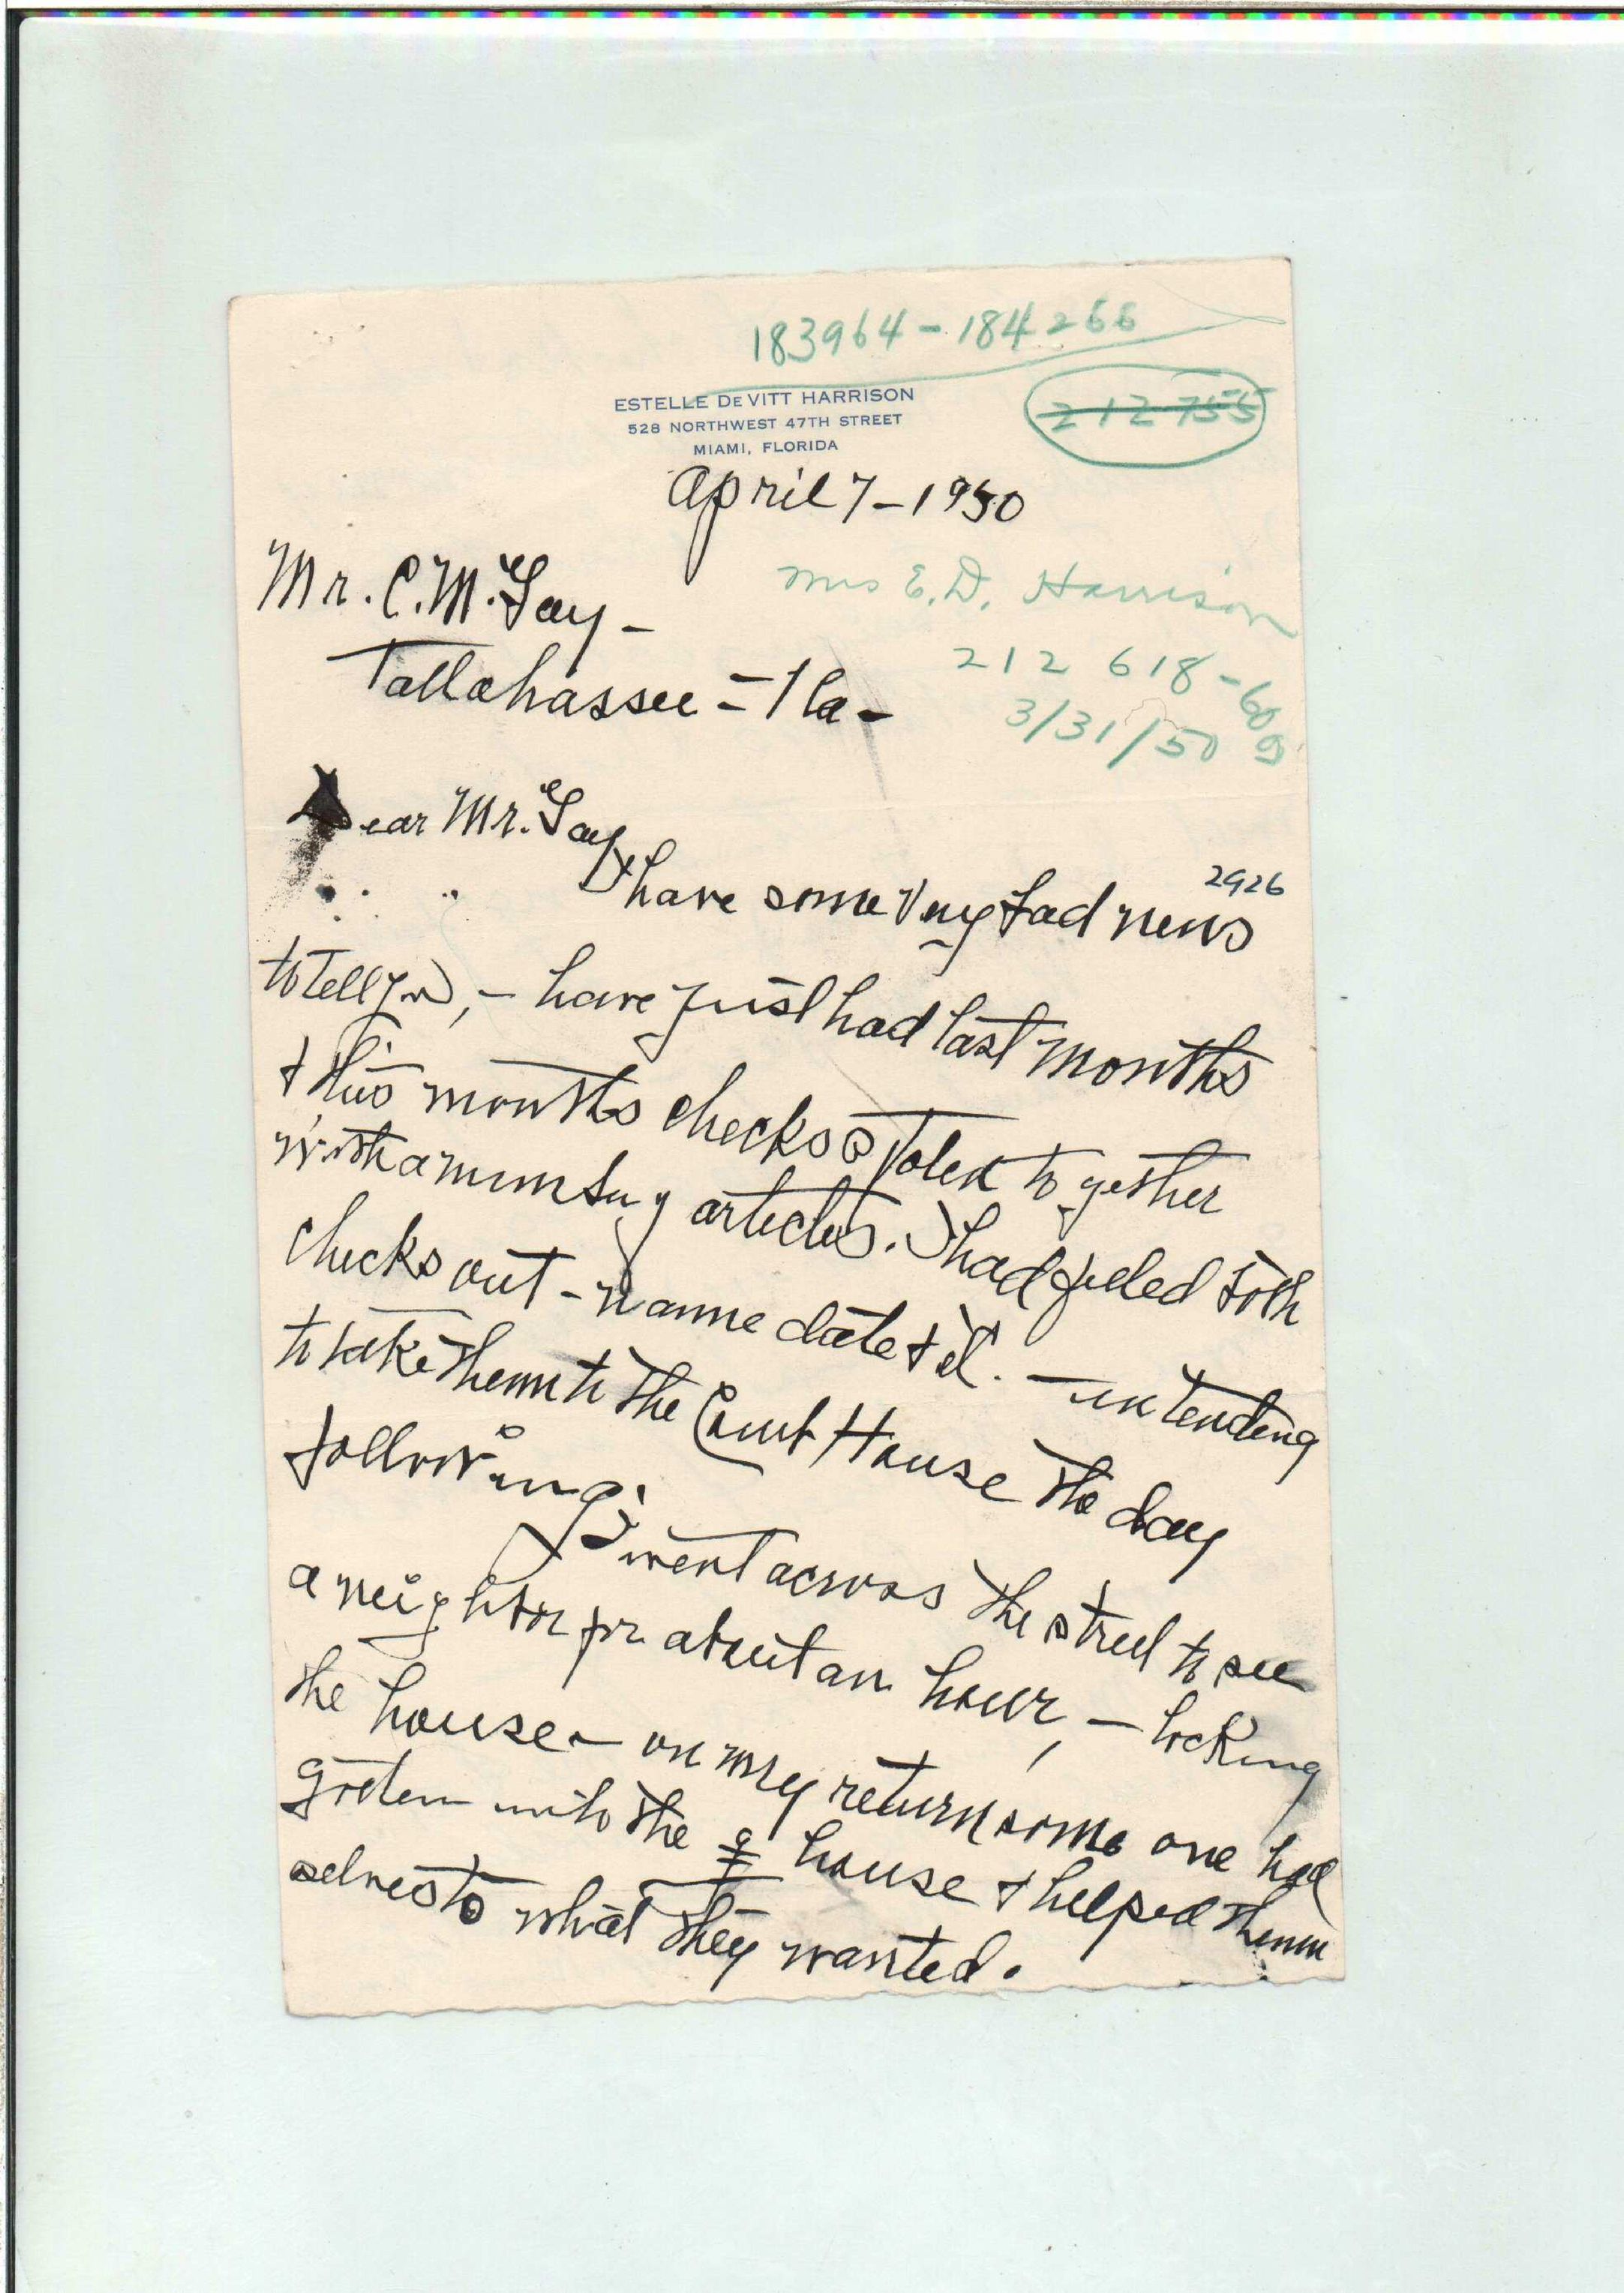 183964 - 184266
ESTELLE DE VITT HARRISON
528 NORTHWEST 47TH STREET
MIAMI, FLORIDA
212 755
April 7 - 1950
Mr. C. M. Gay -
Mrs E. D. Harrison
Tallahassee - Fla -
212 618 - 60
3/31/50
Dear Mr. Gay,
2926
I have some very bad news
to tell you, - have just had last months
& this months checks stolen together
with among articles. I had filled both
checks out - name date & - intending
to take them to the Court House the day
following. I went across the street to see
a neighbor for about an hour, - locking
the house - on my return some one had
gotten into the house & helped them
selves to what they wanted.